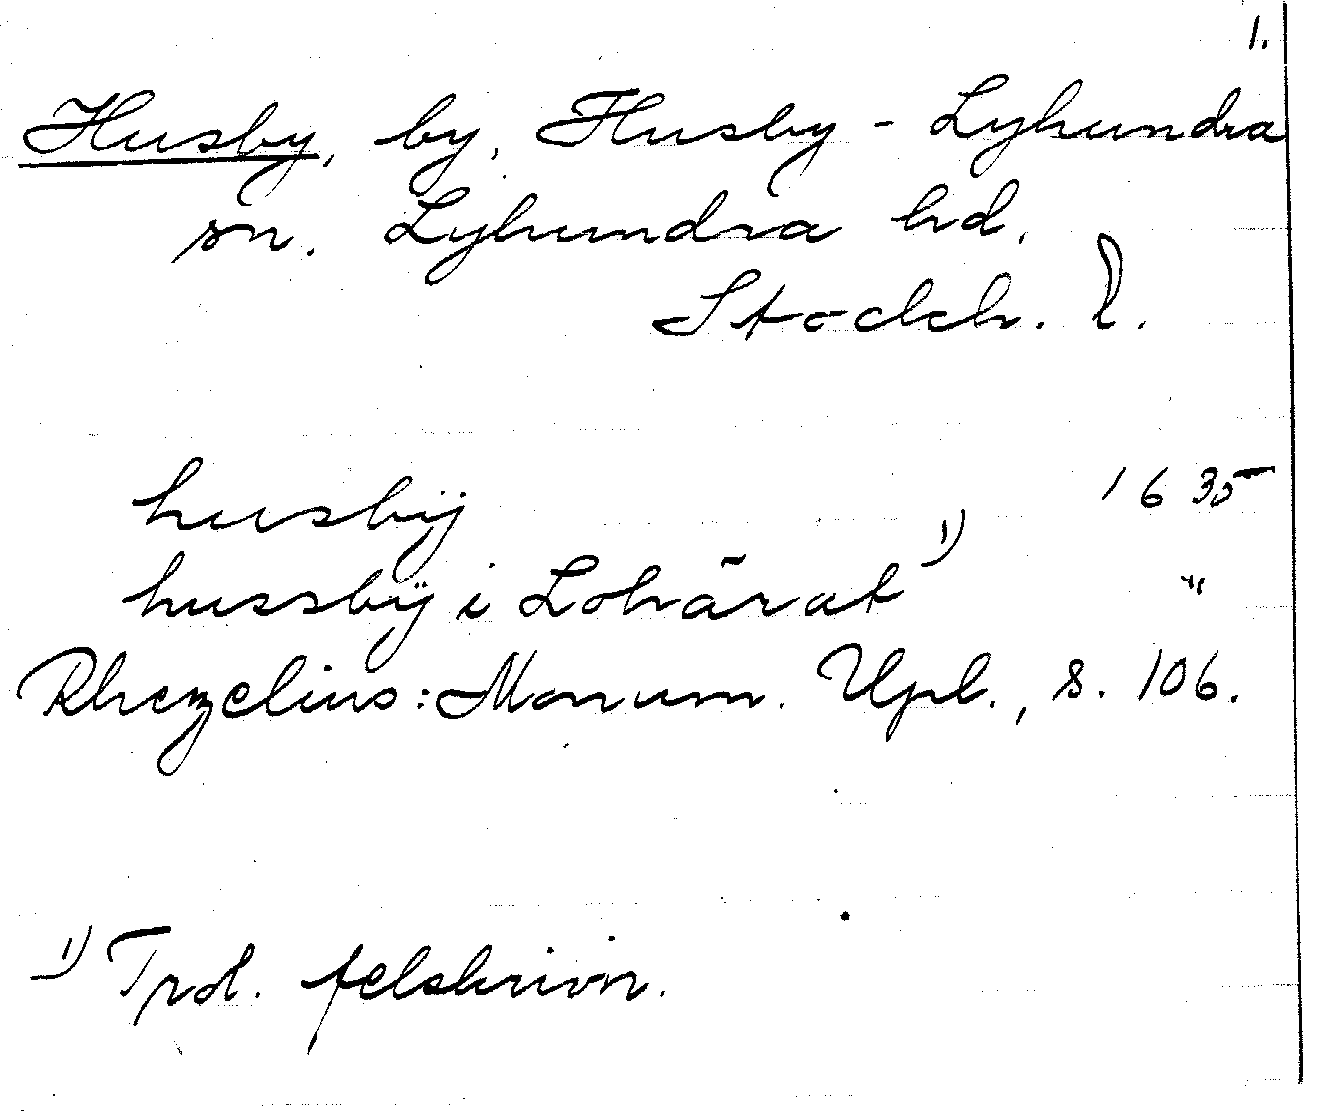 1.
Husby, by, Husby-Lyhundra
sn. Lyhundra hd.
Stockh. l.
husbÿ 1635
hussbÿ i Lohärat 1) "
Rhezelius: Monum. Upl., s. 106.
1) Trol. felskrivn.